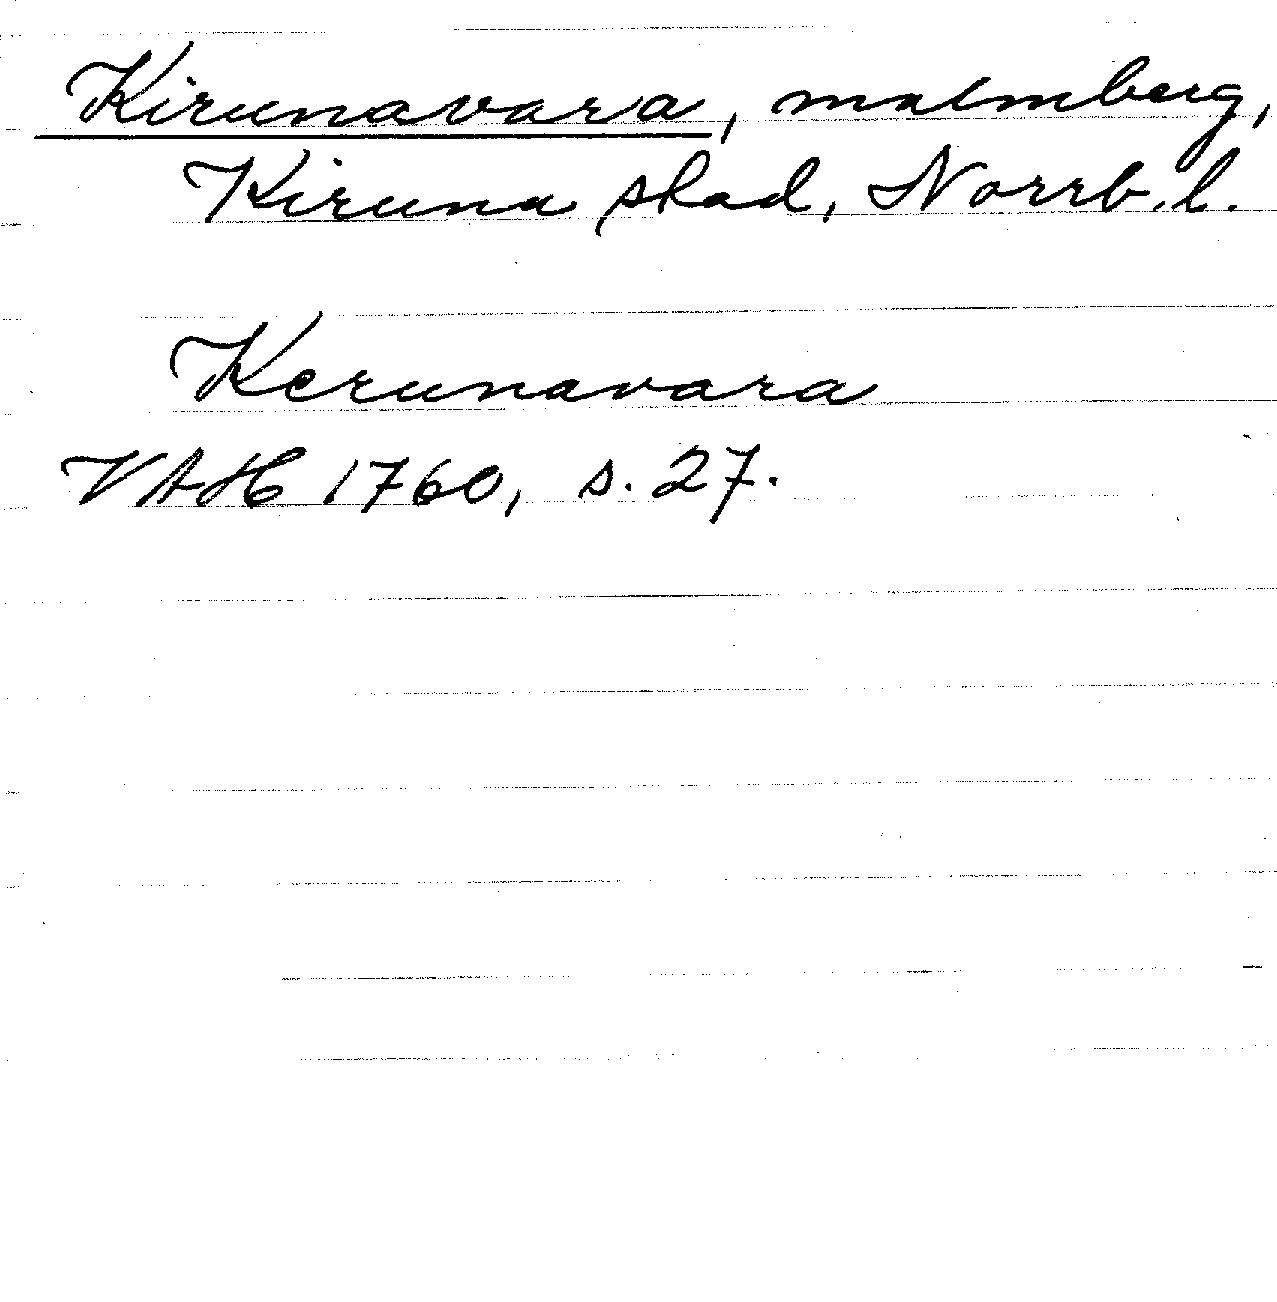 Kirunavara, malmberg,
Kiruna stad, Norrb. l.
Kerunavara
VAH 1760, s. 27.